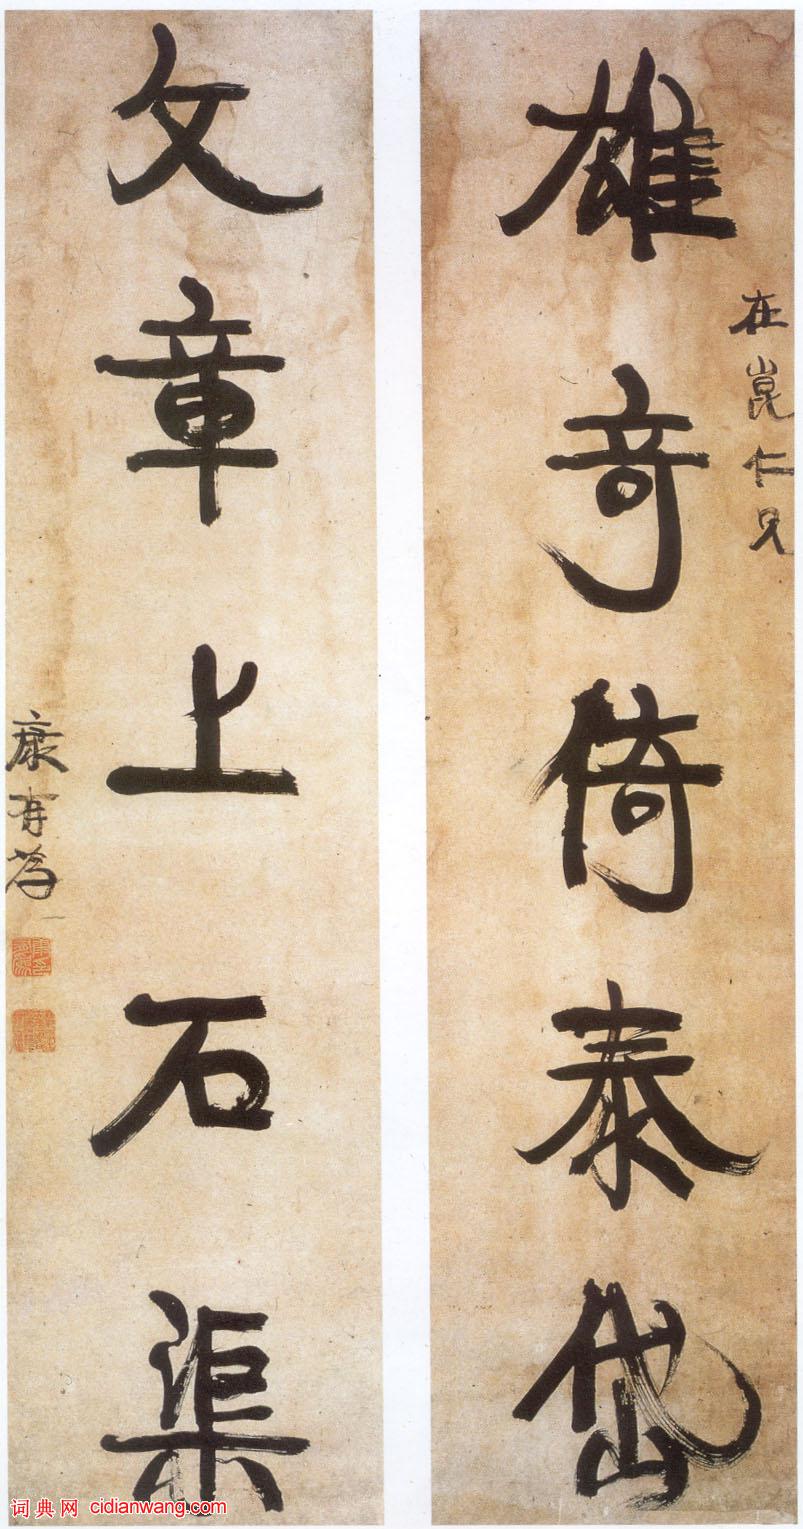 在崑仁兄
雄奇倚泰岱
文章上石渠
康有為
词典网 cidianwang.com